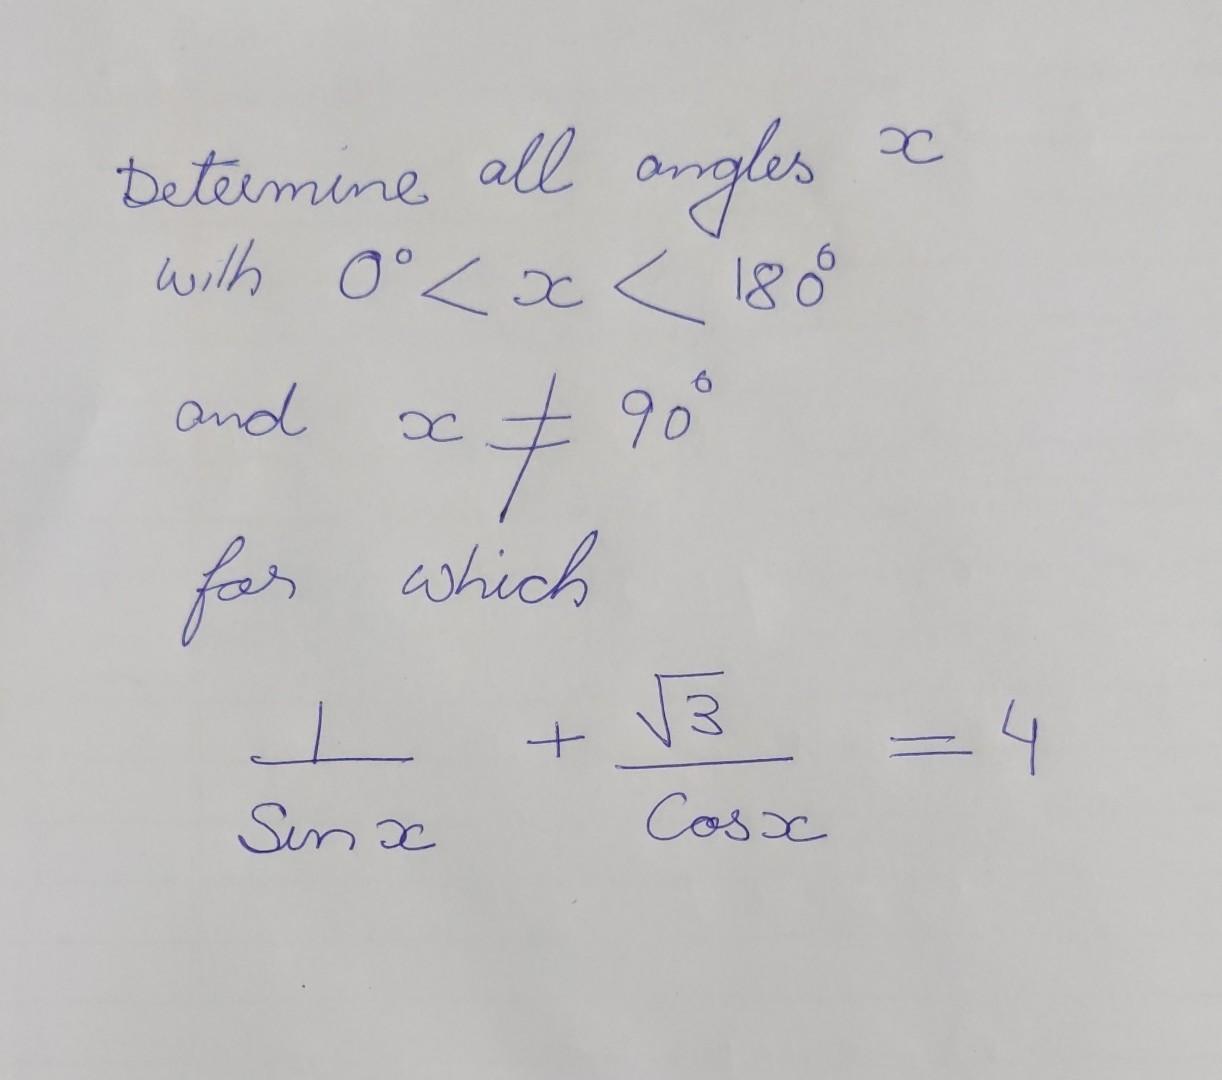 Determine all angles x
with 0° < x < 180°
and x ≠ 90°
for which
1/Sin x + √3/Cos x = 4